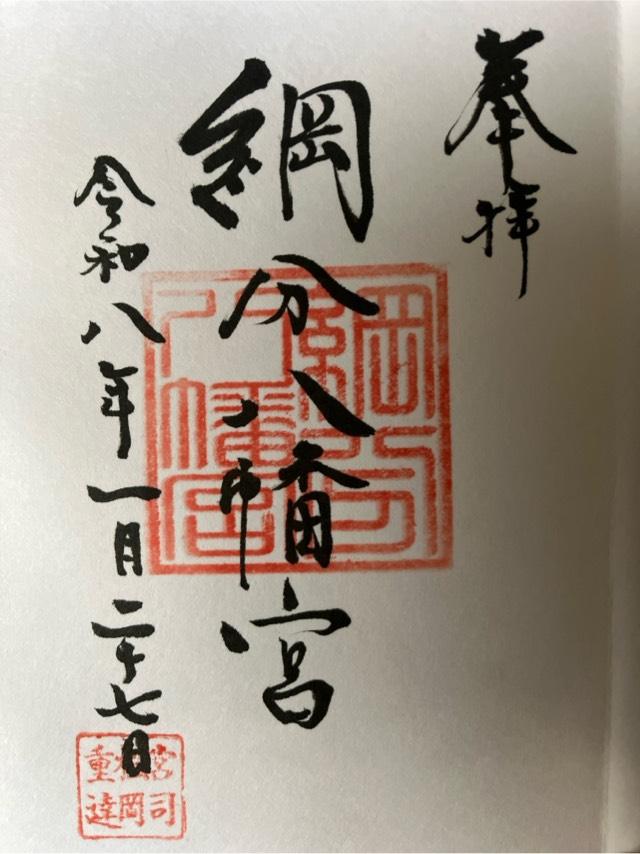 奉拝
綱分八幡宮
令和八年一月二十七日
綱分
八幡宮
宮司
岡
重達